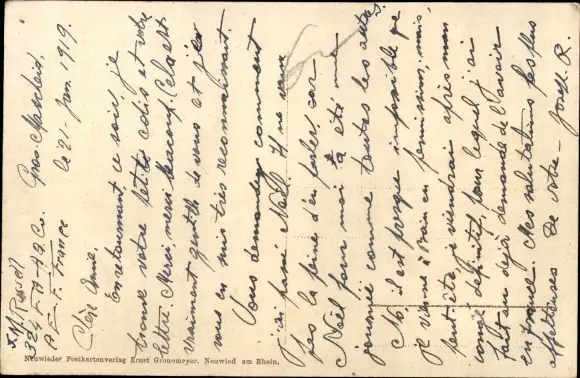 J. M. Russell
324 F.A-HQ.Co.
A. E. F. France
Gros-Maischeid,
le 21-Jan. 1919.
Chère Amie,
En retournant ce soir, je
trouve votre petite colis et votre
lettre. Merci, merci beaucoup. Cela est
vraiment gentille de vous et je
vous en suis très reconnaissant.
Vous demandez comment
j'ai passé Noël. Il ne vaut
pas la peine d'en parler, car
Noël pour moi a été une
journée comme toutes les autres.
No, il est presque impossible que
je vienne à en permission, mais,
peut-être, je viendrai après mon
congé définitif, pour lequel j'ai
fait un déjà demande de l'avoir
en France. Mes salutations les plus
affectueuses. De votre - Josh. R.
Neuwieder Postkartenverlag Ernst Gronemeyer, Neuwied am Rhein.